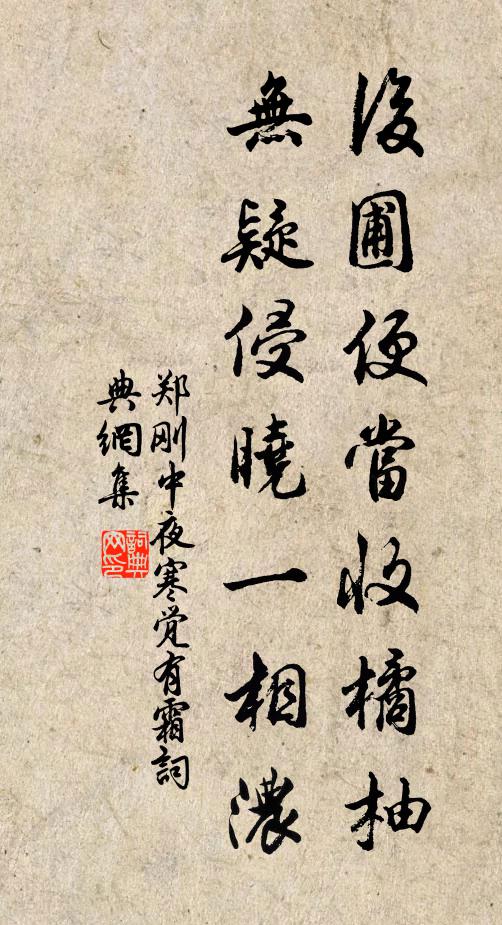 後圃便當收橘柚
無疑侵曉一相濃
郑刚中夜寒觉有霜詞
典網集
詞典网印